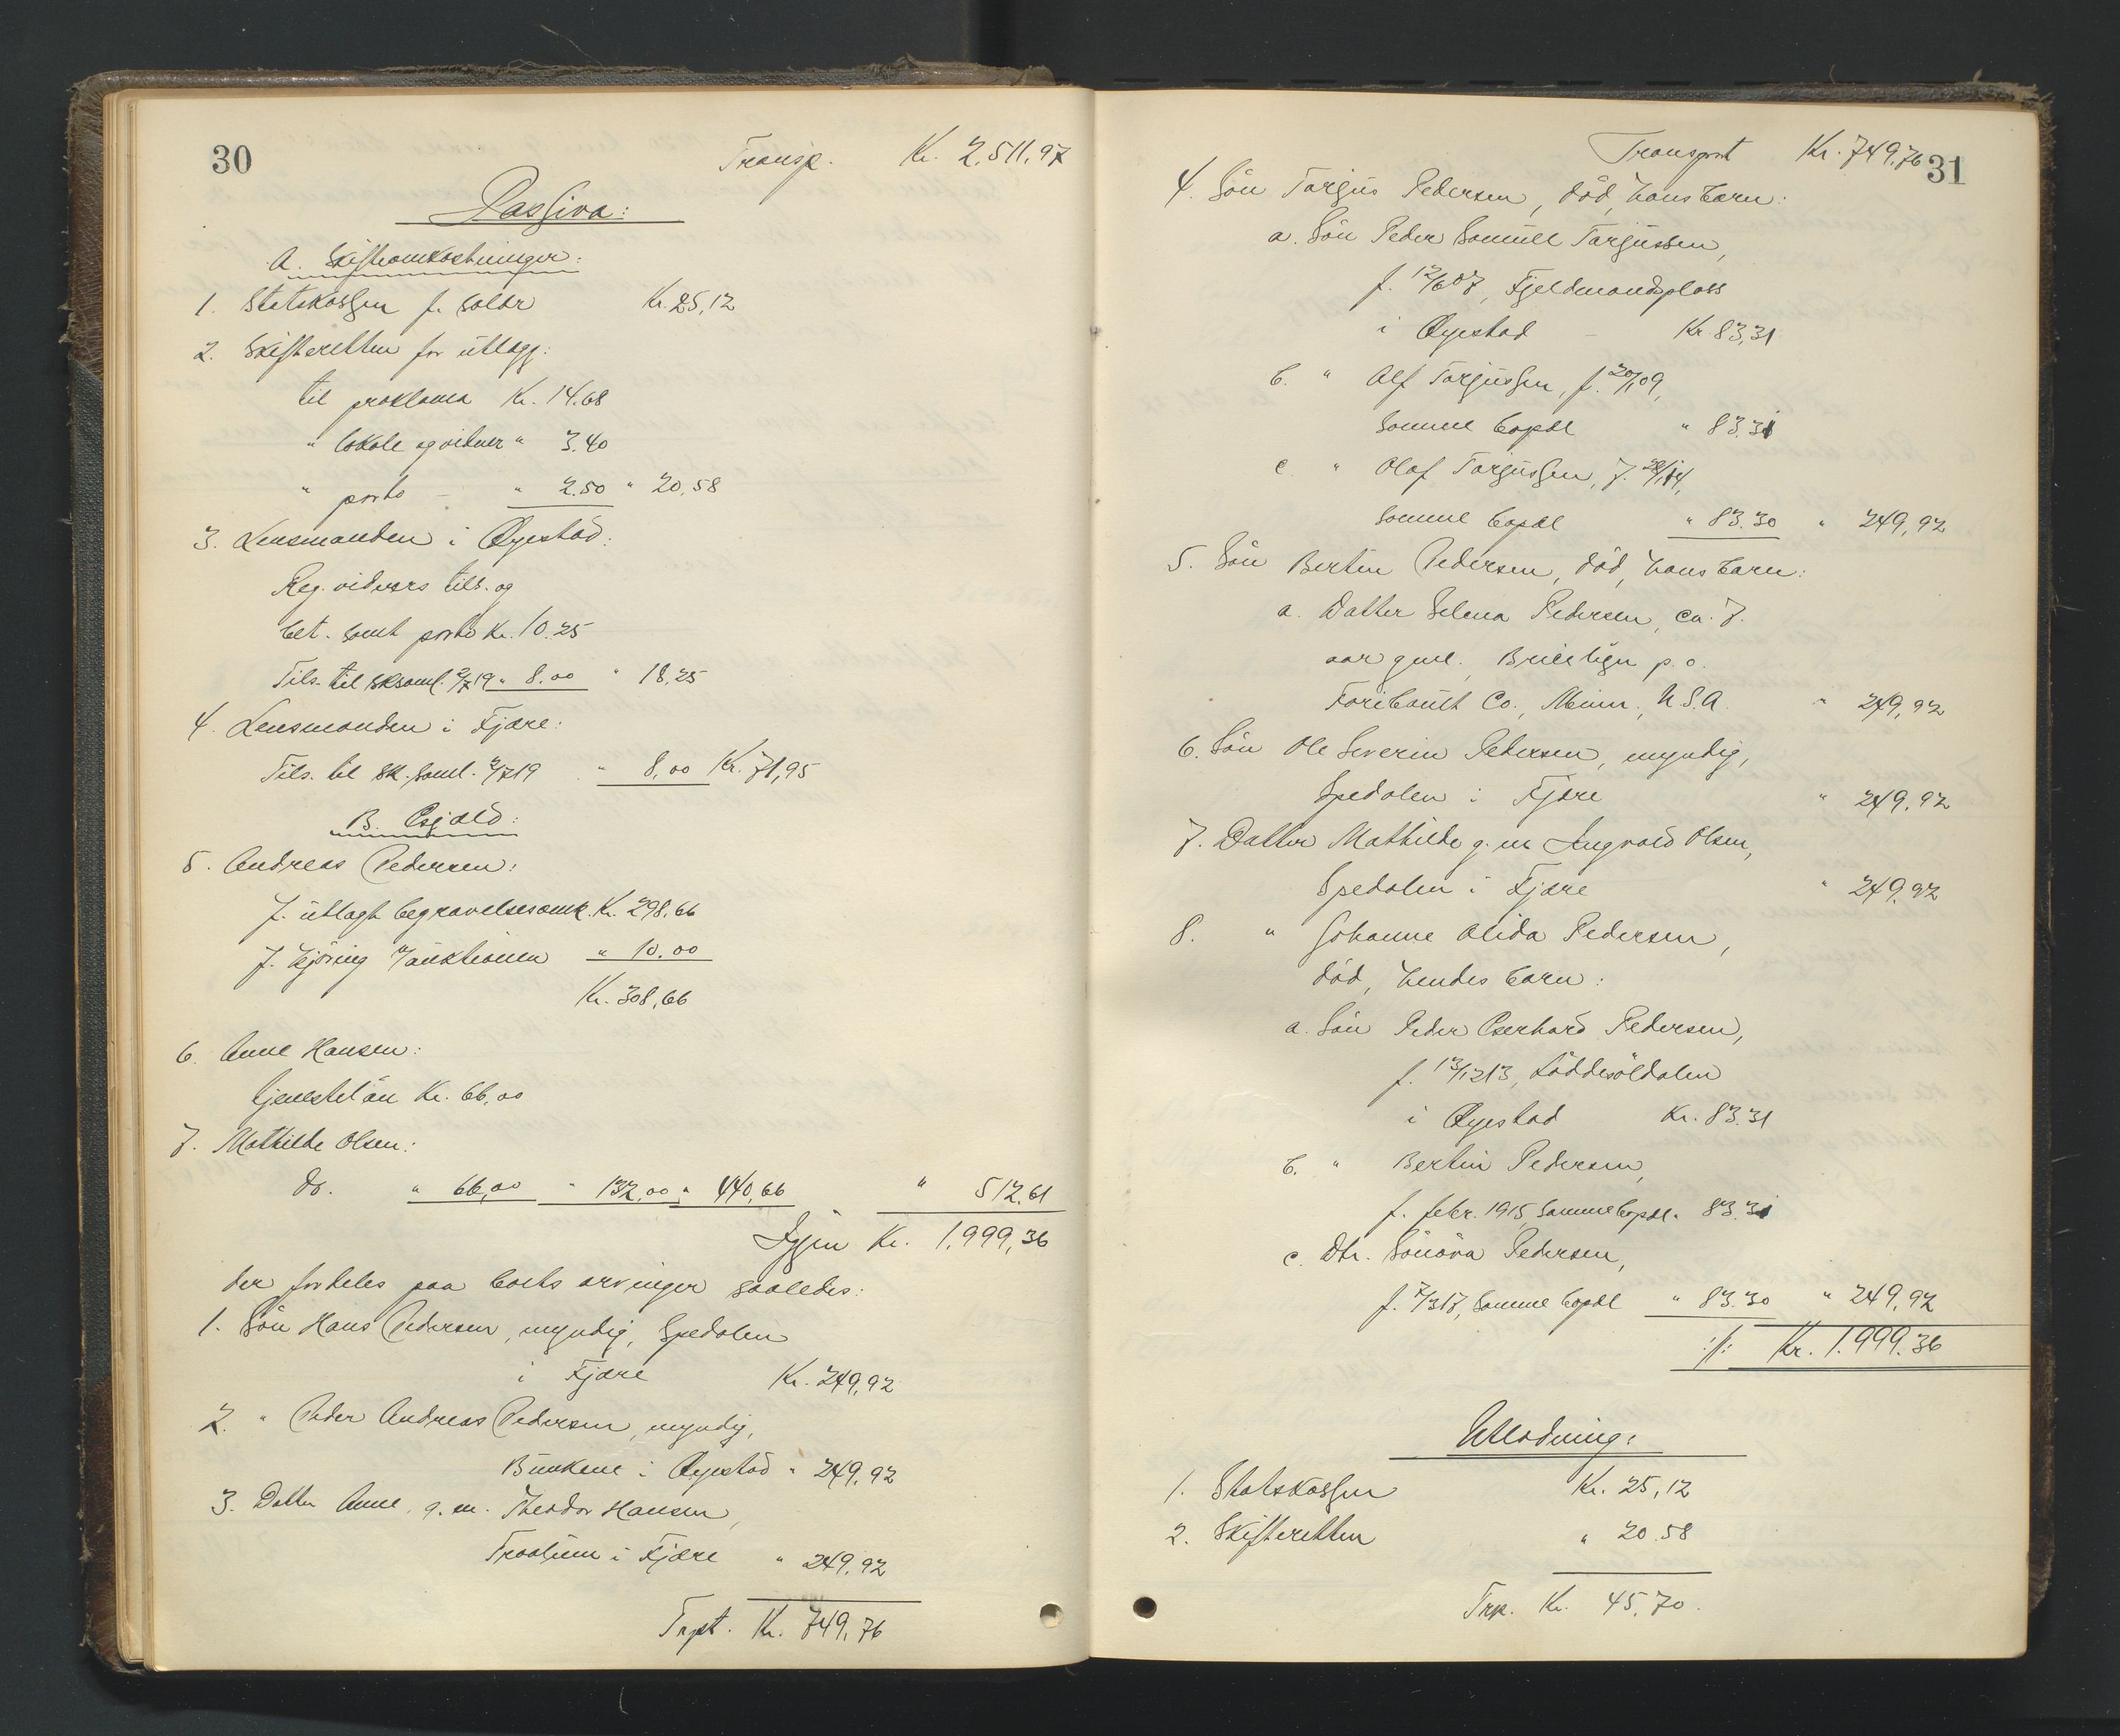 30
Transp. Kr. 2,511,97
Passiva:
A. Skifteomkostninger:
1. Statskassen f. salær Kr. 25,12
2. Skifteretten for utlagg:
til proklama Kr. 14.68
" lokale og vidner " 3.40
" porto - " 2.50 " 20,58
3. Lensmanden i Øyestad:
Reg. vidners tils. og
bet. samt porto Kr. 10.25
Tils. til sksaml. 2/7 19 " 8.00 " 18,25
4. Lensmanden i Fjære:
Tils. til sk. saml. 2/7 19 " 8,00 Kr. 71,95
B. Gjæld:
5. Andreas Pedersen:
f. utlagt begravelsesomk. Kr. 298,66
f. kjøring t/ auktionen " 10.00
Kr. 308,66
6. Anne Hansen:
tjenesteløn Kr. 66,00
7. Mathilde Olsen:
do. " 66,00 " 132,00 " 440,66 " 512,61
Igjen Kr. 1,999,36
der fordeles paa boets arvinger saaledes:
1. Søn Hans Pedersen, myndig, Spedalen
i Fjære Kr. 249,92
2. " Peder Andreas Pedersen, myndig,
i Øyestad " 249,92
3. Datter Anne, g. m. Theodor Hansen,
i Fjære " 249,92
Trpt. Kr. 749,76
Transport Kr. 749,76
31
4. Søn Tarjus Pedersen, død, hans barn:
a. Søn Peder Samuel Tarjussen,
f. 12/6 07, Fjeldmandsplass
i Øyestad - Kr. 83,31
b. " Alf Tarjussen, f. 20/1 09,
samme bopæl " 83.31
c. " Olaf Tarjussen, f.
samme bopæl " 83.30 " 249,92
5. Søn Bertin Pedersen, død, hans barn:
a. Datter Selena Pedersen, ca. 7.
aar gml. p.o.
Faribault Co., Minn., U.S.A. " 249,92
6. Søn Ole Severin Pedersen, myndig,
Spedalen i Fjære " 249,92
7. Datter Mathilde g. m Ingvald Olsen,
Spedalen i Fjære " 249,92
8. " Johanne Alida Pedersen,
død, hendes barn:
a. Søn Peder Gerhard Pedersen,
f. 13/12 13, Løddesøldalen
i Øyestad Kr. 83.31
b. " Bertin Pedersen,
f. febr. 1915, samme bopæl " 83.31
c. Dtr. Sønøva Pedersen,
f. 7/3 17, samme bopæl " 83.30 " 249,92
:/: Kr. 1.999.36
Utlodning:
1. Statskassen Kr. 25,12
2. Skifteretten " 20.58
Trp. Kr. 45,70.